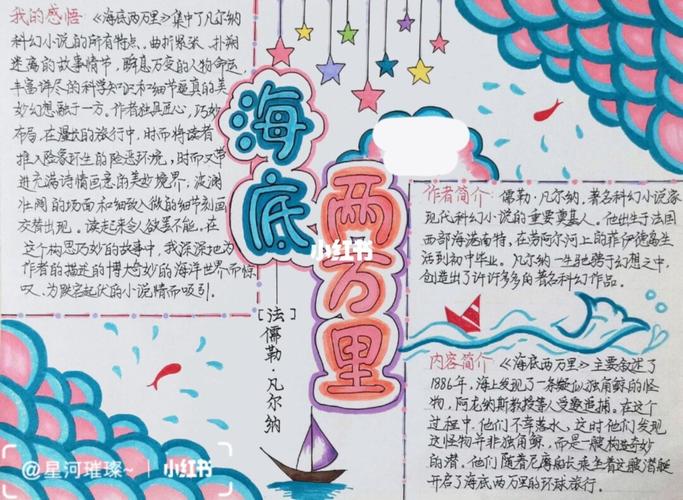 我的感悟:《海底两万里》集中了凡尔纳
科幻小说的所有特点。曲折紧张、扑朔
迷离的故事情节,瞬息万变的人物命运,
丰富详尽的科学知识和细节逼真的美
妙幻想融于一方。作者独具匠心,巧妙
布局,在漫长的旅行中,时而将读者
推入险象环生的险恶环境,时而又带
进充满诗情画意的美妙境界,波澜
壮阔的场面和细致入微的细节刻画
交替出现。读起来令人欲罢不能。在
这个构思巧妙的故事中,我深深地为
作者的描述的博大奇妙的海洋世界而惊
叹、为跌宕起伏的小说情而吸引。
海底
两万里
小红书
[法]儒勒·凡尔纳
作者简介:儒勒·凡尔纳,著名科幻小说家
现代科幻小说的重要奠基人。他出生于法国
西部海港南特,在劳阿尔河上的菲伊德岛生
活到初中毕业。凡尔纳一生驰骋于幻想之中,
创造出了许许多多的著名科幻作品。
内容简介:《海底两万里》主要叙述了
1886年,海上发现了一条疑似独角鲸的怪
物,阿龙纳斯教授等人受邀追捕。在这个
过程中,他们不幸落水,这时他们发现
这怪物并非独角鲸,而是一艘构造奇妙
的潜。他们随着尼摩船长乘坐着这艘潜艇
开启了海底两万里的环球旅行。
@星河璀璨~ | 小红书